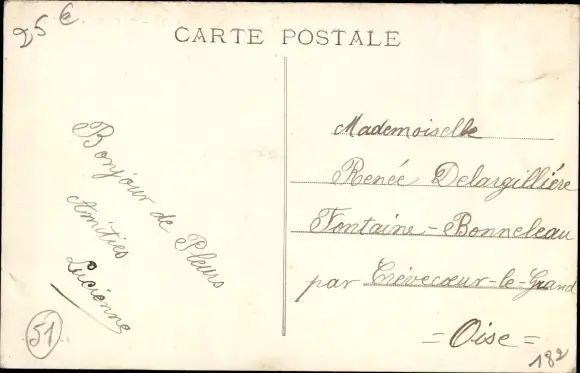 25 €
CARTE POSTALE
Bonjour de Pleurs
Amitiés
Lucienne
51
Mademoiselle
Renée Delargillière
Fontaine-Bonneleau
par Crèvecœur-le-Grand
= Oise =
182